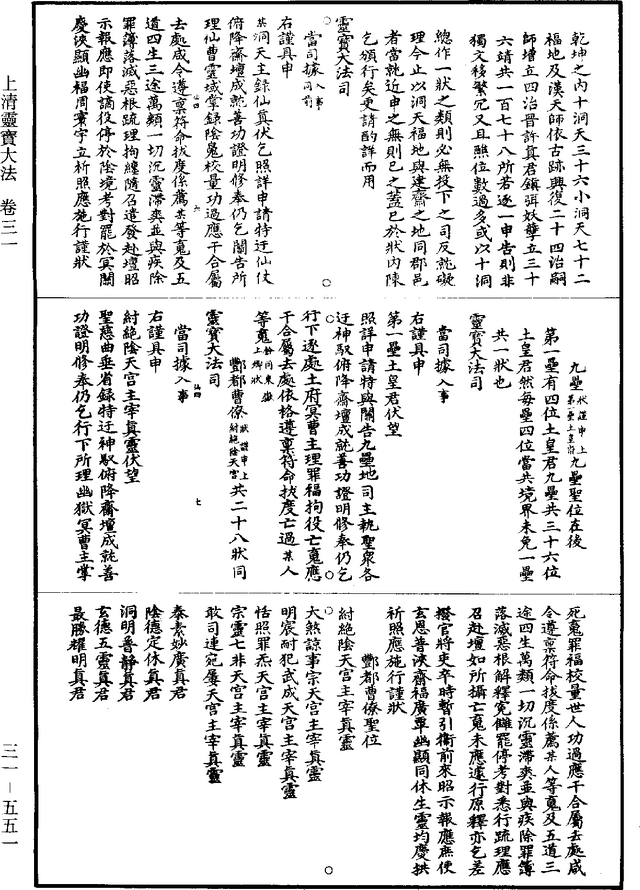 上清靈寶大法　卷三一
三一－五五一
乾坤之內十洞天三十六小洞天七十二
福地及漢天師依古跡興復二十四治嗣
師增立四治晉許真君鎮弭妖孽立三十
六靖共一百七十八所若逐一申告則非
獨文移繁冗又且㸃位數過多或以十洞
總作一狀之類則必無投下之司反就礙
理今止以洞天福地與建齋之地同郡邑
者當就近申之無則已之蓋已於狀內陳
乞頒行矣更請酌詳而用
靈寶大法司
當司據入事同前
右謹具申
某洞天主錄仙真伏乞照詳申請特迂仙仗
俯降齋壇成就善功證明修奉仍乞關告所
理仙曹靈域掌錄陰鬼校量功過應干合屬
去處咸令遵稟符命拔度係薦某等鬼及五
道四生三途萬類一切沉靈滯爽並與疾除
罪簿落滅惡根疏理拘纏隨召遣發赴壇昭
示報應即使謫役停於陰境考對罷於冥關
慶浹顯幽福周寰宇立祈照應施行謹狀
九壘狀謹申上第一壘土皇君九壘聖位在後
第一壘有四位土皇君九壘共三十六位
土皇君然每壘四位當共境界未免一壘
共一狀也
靈寶大法司
當司據入事
右謹具申
第一壘土皇君伏望
照詳申請特與關告九壘地司主執聖衆各
迂神馭俯降齋壇成就善功證明修奉仍乞
行下逐處土府冥曹主理罪福拘役亡鬼應
干合屬去處依格遵稟符命拔度亡過某人
等鬼餘同東嶽上卿狀
酆都曹僚狀謹申上紂絕陰天宮共二十八狀同
靈寶大法司
當司據入事
右謹具申
紂絕陰天宮主宰真靈伏望
聖慈曲垂省錄特迂神馭俯降齋壇成就善
功證明修奉仍乞行下所理幽獄冥曹主掌
死鬼罪福校量世人功過應干合屬去處咸
令遵稟符命拔度係薦某人等鬼及五道三
途四生萬類一切沉靈滯爽並與疾除罪簿
落滅惡根解釋冤讎罷停考對悉行疏理應
召赴壇如所攝亡鬼未應遽行原釋亦乞差
撥官將吏卒時暫引衛前來昭示報應庶使
玄恩普浹齋福廣覃幽顯同休生靈均慶拱
祈照應施行謹狀
酆都曹僚聖位
紂絕陰天宮主宰真靈
大煞諒事宗天宮主宰真靈
明宸耐犯武成天宮主宰真靈
恬照罪炁天宮主宰真靈
宗靈七非天宮主宰真靈
敢司連宛屢天宮主宰真靈
泰素妙廣真君
陰德定休真君
洞明普靜真君
玄德五靈真君
最勝耀明真君